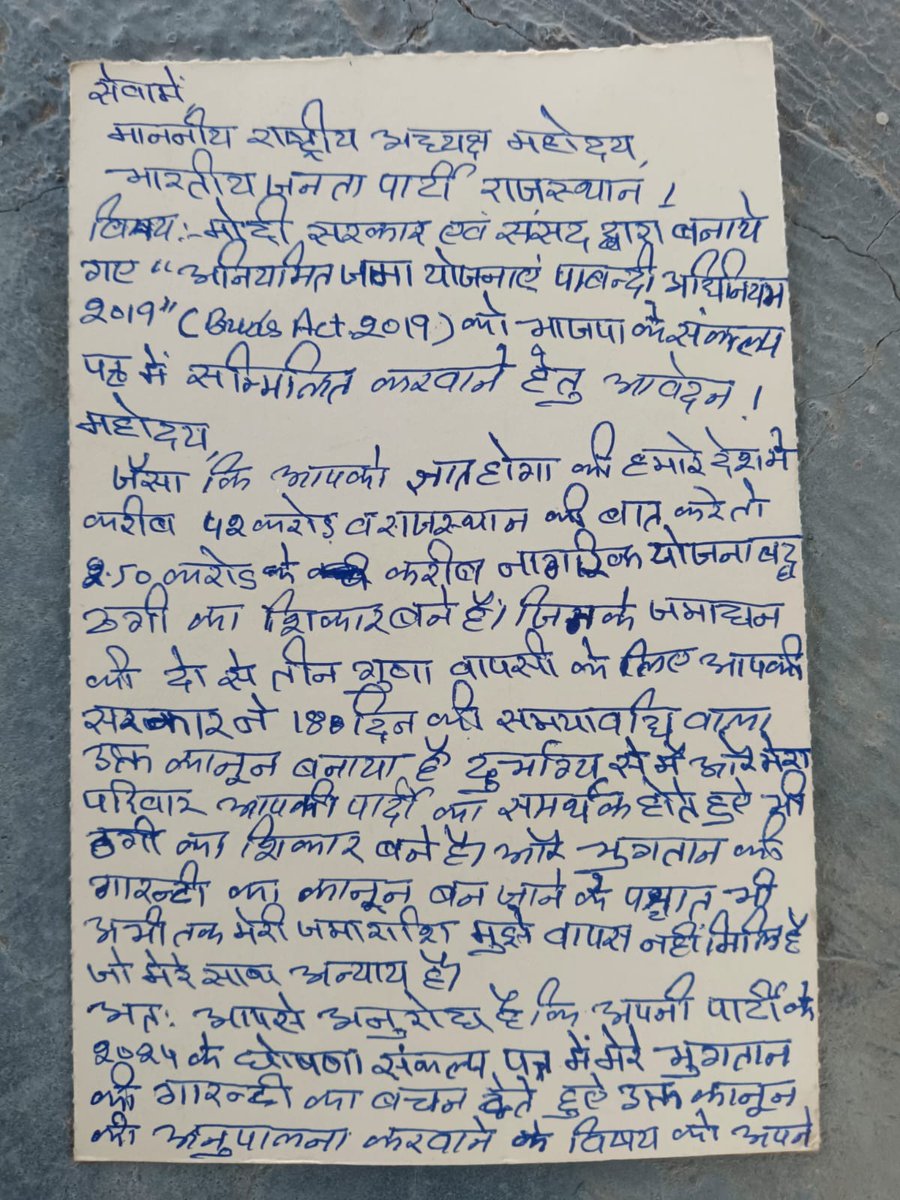 सेवामें,
माननीय राष्ट्रीय अध्यक्ष महोदय,
भारतीय जनता पार्टी राजस्थान !
विषय:- मोदी सरकार एवं संसद द्वारा बनाये
गए “अनियमित जमा योजनाएं पाबन्दी अधिनियम
२०१९” (Buds Act. २०१९) को भाजपा के संकल्प
पत्र में सम्मिलित करवाने हेतु आवेदन !
महोदय,
जैसा कि आपको ज्ञात होगा की हमारे देश मे
करीब ५२ करोड़ व राजस्थान की बात करे तो
२.५० करोड के करीब नागरिक योजनाबद्ध
ठगी का शिकार बने है। जिनके जमाधन
की दो से तीन गुणा वापसी के लिए आपकी
सरकार ने 180 दिन की समयावधि वाला
उक्त कानून बनाया है दुर्भाग्य से मै और मेरा
परिवार आपकी पार्टी का समर्थक होते हुऐ भी
ठगी का शिकार बने है। और भुगतान की
गारन्टी का कानून बन जाने के पश्चात भी
अभी तक मेरी जमाराशि मुझे वापस नहीं मिलि है
जो मेरे साथ अन्याय है।
अत: आपसे अनुरोध है कि अपनी पार्टी के
२०२४ के घोषणा संकल्प पत्र में मेरे भुगतान
की गारन्टी का बचन देते हुऐ उक्त कानून
की अनुपालना करवाने के विषय को अपने